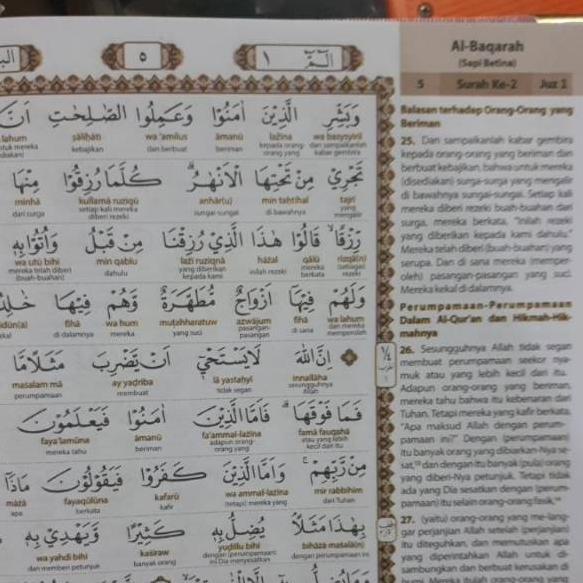 ٥
١ الٓمّٓ
وَبَشِّرِ الَّذِيْنَ اٰمَنُوْا وَعَمِلُوا الصّٰلِحٰتِ اَنَّ
wa basysyiril lażīna āmanū wa ‘amilus ṣāliḥāti
dan sampaikanlah kabar gembira kepada orang-orang yang beriman dan berbuat kebajikan
تَجْرِيْ مِنْ تَحْتِهَا الْاَنْهٰرُ ۗ كُلَّمَا رُزِقُوْا مِنْهَا
tajrī min taḥtihal anhār(u) kullamā ruziqū minhā
yang mengalir di bawahnya sungai-sungai setiap kali mereka diberi rezeki dari surga
رِّزْقًا ۙ قَالُوْا هٰذَا الَّذِيْ رُزِقْنَا مِنْ قَبْلُ وَاُتُوْا بِهٖ
rizqā(n) qālū hāżal lażī ruziqnā min qablu wa utū bihī
(sebagai) rezeki mereka berkata inilah rezeki yang diberikan kepada kami dahulu mereka telah diberi (buah-buahan)
وَلَهُمْ فِيْهَآ اَزْوَاجٌ مُّطَهَّرَةٌ وَّهُمْ فِيْهَا
wa lahum fīhā azwājum muṭahharatuw wa hum fīhā
dan mereka memperoleh di sana pasangan-pasangan yang suci dan mereka di dalamnya
اِنَّ اللّٰهَ لَا يَسْتَحْيٖٓ اَنْ يَّضْرِبَ مَثَلًا مَّا
innallāha lā yastaḥyī ay yaḍriba maṡalam mā
sesungguhnya Allah tidak segan membuat perumpamaan
فَمَا فَوْقَهَا ۗ فَاَمَّا الَّذِيْنَ اٰمَنُوْا فَيَعْلَمُوْنَ
famā fauqahā fa'ammal-lażīna āmanū faya‘lamūna
atau yang lebih kecil dari itu adapun orang-orang yang beriman mereka tahu
مِنْ رَّبِّهِمْ ۚ وَاَمَّا الَّذِيْنَ كَفَرُوْا فَيَقُوْلُوْنَ مَاذَآ
mir rabbihim wa ammal-lażīna kafarū fayaqūlūna māżā
dari Tuhan (tetapi) mereka yang kafir berkata apa
بِهٰذَا مَثَلًا ۘ يُضِلُّ بِهٖ كَثِيْرًا وَّيَهْدِيْ بِهٖ
bihāżā maṡalā(n) yuḍillu bihī kaṡīraw wa yahdī bihī
dengan perumpamaan ini dengan (perumpamaan) itu Dia menyesatkan banyak orang dan memberi petunjuk
Al-Baqarah
(Sapi Betina)
5 Surah Ke-2 Juz 1
Balasan terhadap Orang-Orang yang
Beriman
25. Dan sampaikanlah kabar gembira
kepada orang-orang yang beriman dan
berbuat kebajikan, bahwa untuk mereka
(disediakan) surga-surga yang mengalir
di bawahnya sungai-sungai. Setiap kali
mereka diberi rezeki buah-buahan dari
surga, mereka berkata, "Inilah rezeki
yang diberikan kepada kami dahulu."
Mereka telah diberi (buah-buahan) yang
serupa. Dan di sana mereka (memper-
oleh) pasangan-pasangan yang suci.
Mereka kekal di dalamnya.
Perumpamaan-Perumpamaan
Dalam Al-Qur'an dan Hikmah-Hik-
mahnya
26. Sesungguhnya Allah tidak segan
membuat perumpamaan seekor nya-
muk atau yang lebih kecil dari itu.
Adapun orang-orang yang beriman
mereka tahu bahwa itu kebenaran dari
Tuhan. Tetapi mereka yang kafir berkata,
"Apa maksud Allah dengan perum-
pamaan ini?" Dengan (perumpamaan)
itu banyak orang yang dibiarkan-Nya se-
sat, dan dengan itu banyak (pula) orang
yang diberi-Nya petunjuk. Tetapi tidak
ada yang Dia sesatkan dengan (perum-
pamaan) itu selain orang-orang fasik,
27. (yaitu) orang-orang yang me-lang-
gar perjanjian Allah setelah (perjanjian)
itu diteguhkan, dan memutuskan apa
yang diperintahkan Allah untuk di-
sambungkan dan berbuat kerusakan di